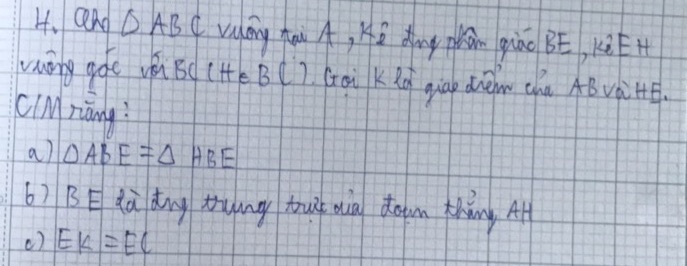 4. Cho Δ ABC vuông tại A, Kẻ đng phân giác BE, kẻ EH
vuông góc với BC (H ∈ BC). Gọi K là giao điểm của AB và HE.
C/M rằng:
a) Δ ABE = Δ HBE
b) BE là đng trung trực của đoạn thẳng AH
c) EK = EC